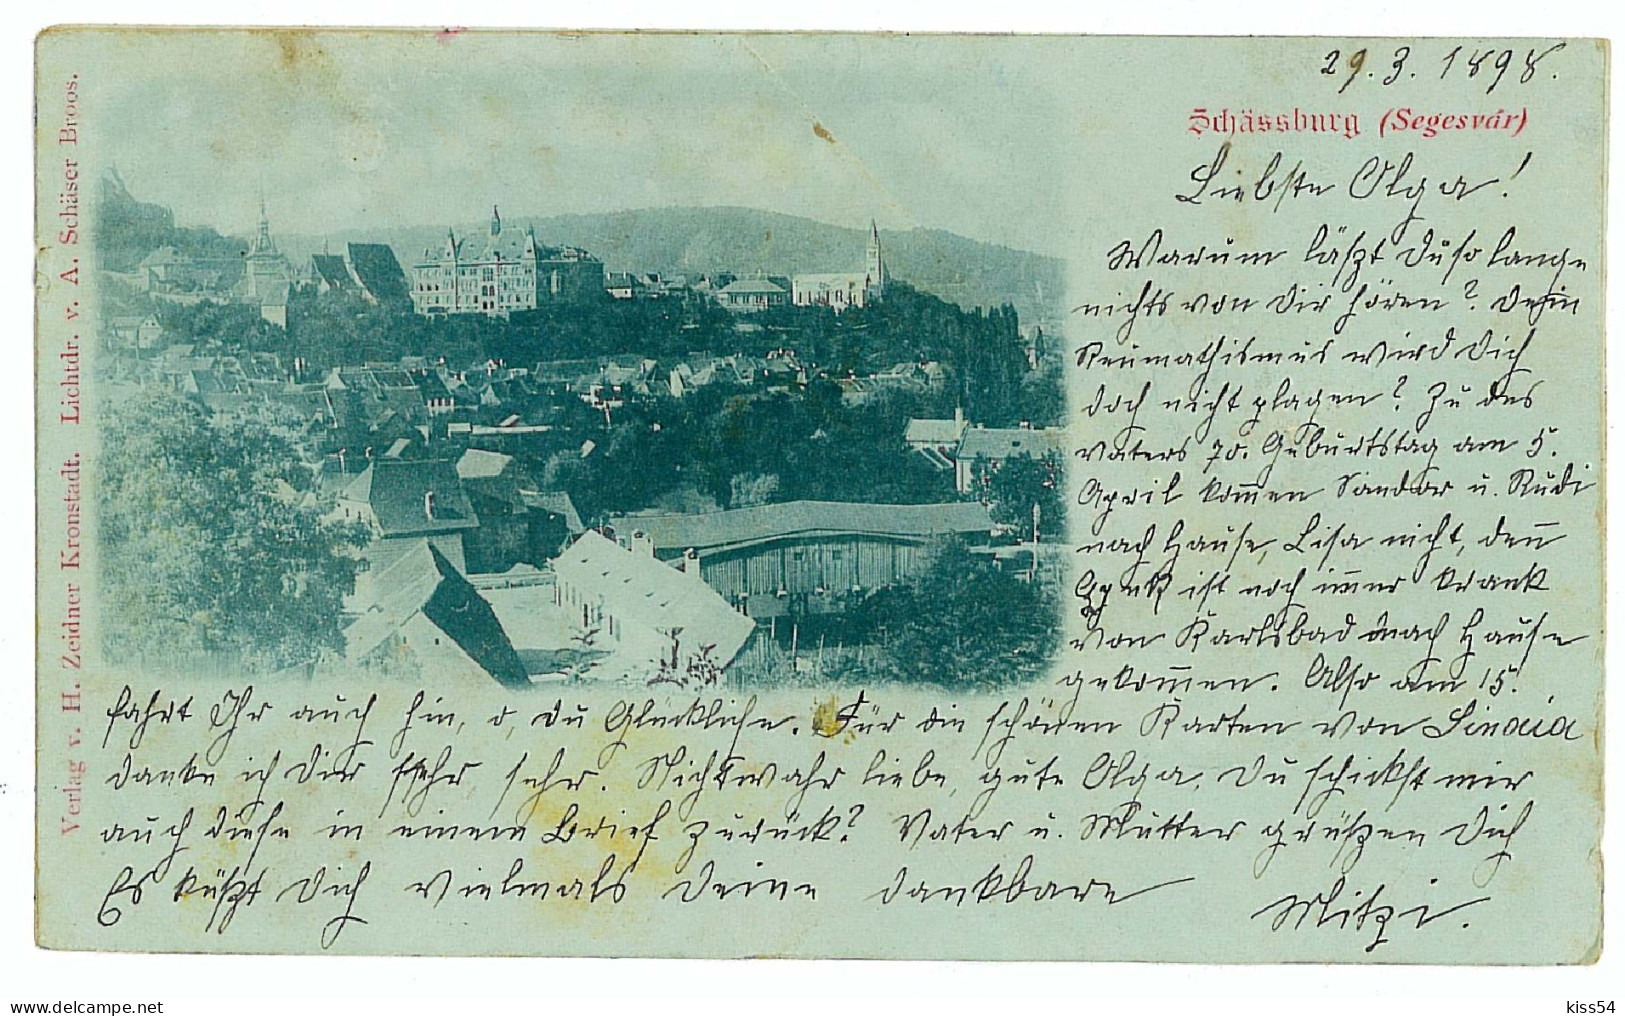 29. 3. 1898.
Schässburg (Segesvár)
Liebste Olga!
Warum läszt Du so lange
nichts von Dir hören? Dein
Reumathismus wird Dich
doch nicht plagen? Zu des
Vaters 70. Geburtstag am 5.
April kom̄en Sandor u. Rudi
nach Hause, Lisa nicht, den̄
ist noch im̄er krank
von Karlsbad nach Hause
gekom̄en. Also am 15.
fahrt Ihr auch hin, o, Du Glückliche. Für die schönen Karten von Sinaia
danke ich Dir sehr sehr. Nicht wahr liebe, gute Olga, Du schickst mir
auch diese in einem Brief zurück? Vater u. Mutter grüßen Dich
Es küßt Dich vielmals Deine dankbare
Mitzi.
Verlag v. H. Zeidner Kronstadt. Lichtdr. v. A. Schäser Broos.
delcampe.net
kiss54